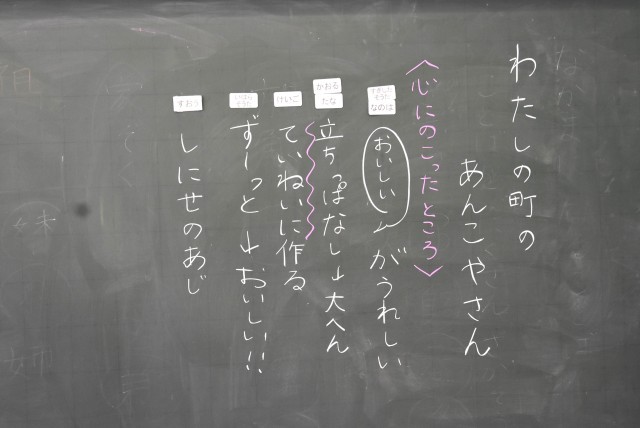 わたしの町の
あんこやさん
〈心にのこったところ〉
なのは
「おいしい」がうれしい
かおる
たな
立ちっぱなし→大へん
けいご
ていねいに作る
ずーっと→おいしい!!
すおう
しにせのあじ